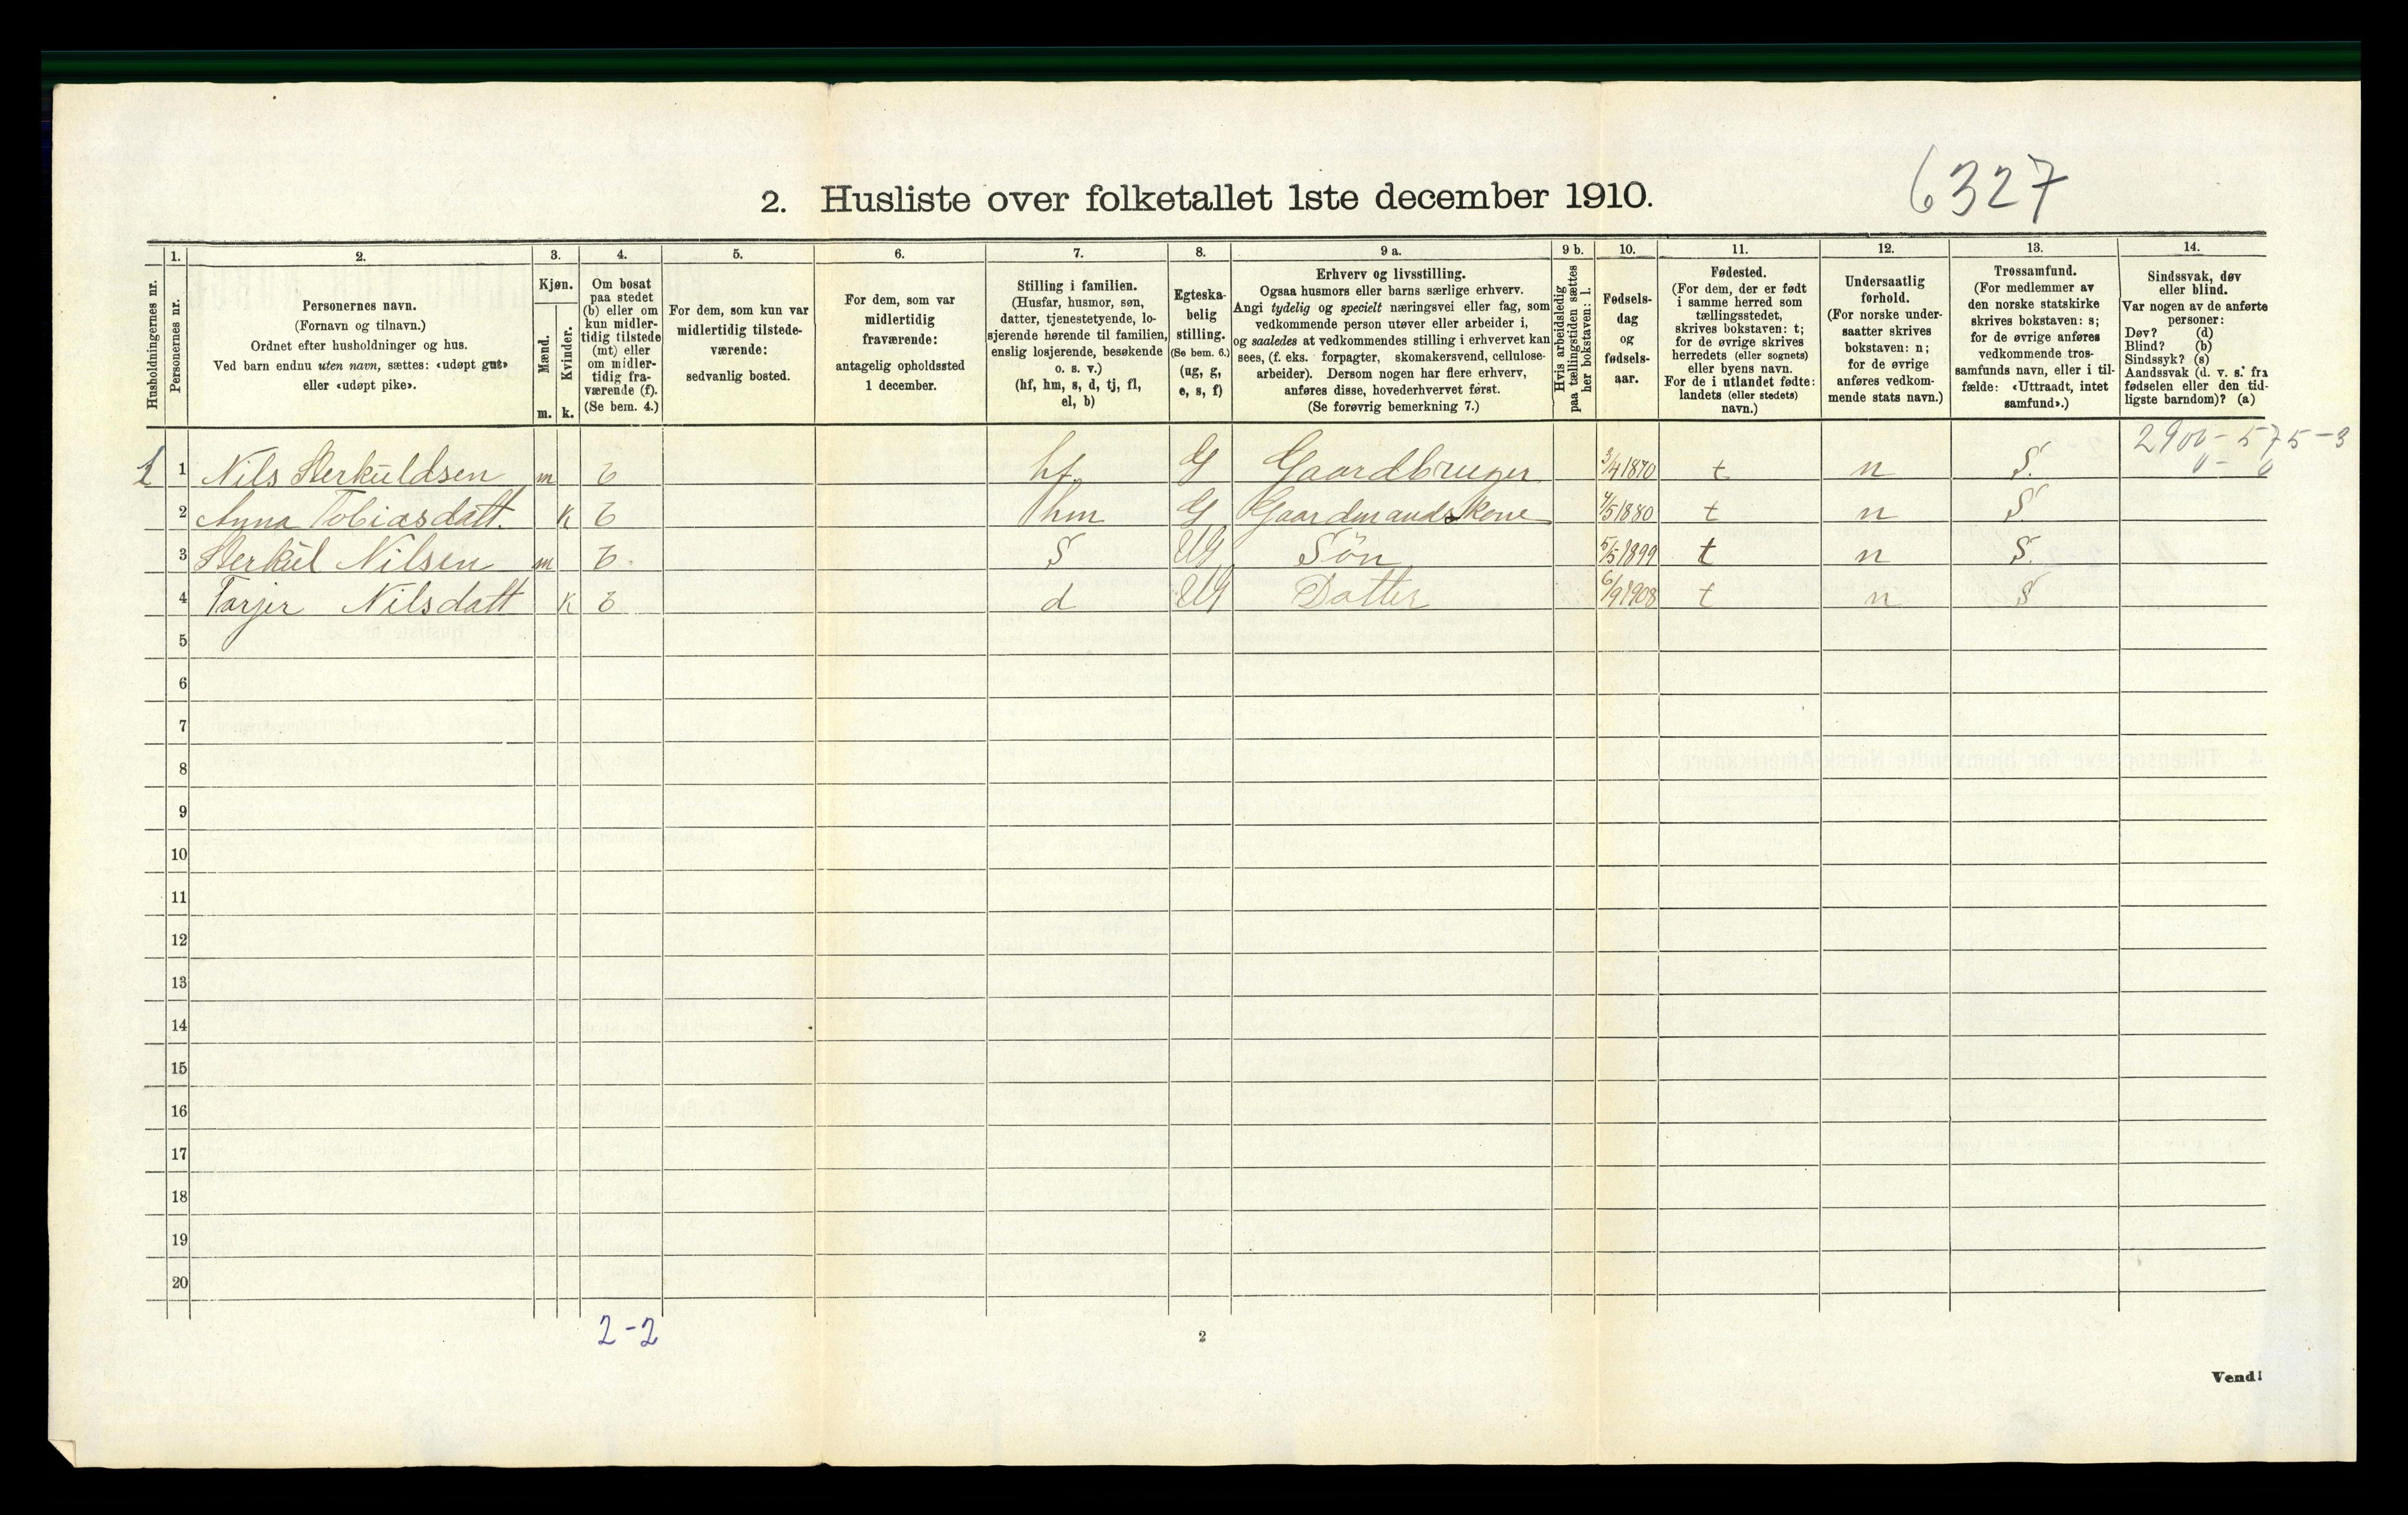 6327
2. Husliste over folketallet 1ste december 1910.
Husholdningernes nr.
1.
Personernes nr.
2.
Personernes navn.
(Fornavn og tilnavn.)
Ordnet efter husholdninger og hus.
Ved barn endnu uten navn, sættes: «udøpt gut»
eller «udøpt pike».
3.
Kjøn.
Mænd.
m.
Kvinder.
k.
4.
Om bosat
paa stedet
(b) eller om
kun midler-
tidig tilstede
(mt) eller
om midler-
tidig fra-
værende (f).
(Se bem. 4.)
5.
For dem, som kun var
midlertidig tilstede-
værende:
sedvanlig bosted.
6.
For dem, som var
midlertidig
fraværende:
antagelig opholdssted
1 december.
7.
Stilling i familien.
(Husfar, husmor, søn,
datter, tjenestetyende, lo-
sjerende hørende til familien,
enslig losjerende, besøkende
o. s. v.)
(hf, hm, s, d, tj, fl,
el, b)
8.
Egteska-
belig
stilling.
(Se bem. 6.)
(ug, g,
e, s, f)
9 a.
Erhverv og livsstilling.
Ogsaa husmors eller barns særlige erhverv.
Angi tydelig og specielt næringsvei eller fag, som
vedkommende person utøver eller arbeider i,
og saaledes at vedkommendes stilling i erhvervet kan
sees, (f. eks. forpagter, skomakersvend, cellulose-
arbeider). Dersom nogen har flere erhverv,
anføres disse, hovederhvervet først.
(Se forøvrig bemerkning 7.)
9 b.
Hvis arbeidsledig
paa tællingstiden sættes
her bokstaven: l.
10.
Fødsels-
dag
og
fødsels-
aar.
11.
Fødested.
(For dem, der er født
i samme herred som
tællingsstedet,
skrives bokstaven: t;
for de øvrige skrives
herredets (eller sognets)
eller byens navn.
For de i utlandet fødte:
landets (eller stedets)
navn.)
12.
Undersaatlig
forhold.
(For norske under-
saatter skrives
bokstaven: n;
for de øvrige
anføres vedkom-
mende stats navn.)
13.
Trossamfund.
(For medlemmer av
den norske statskirke
skrives bokstaven: s;
for de øvrige anføres
vedkommende tros-
samfunds navn, eller i til-
fælde: «Uttraadt, intet
samfund».)
14.
Sindssvak, døv
eller blind.
Var nogen av de anførte
personer:
Døv? (d)
Blind? (b)
Sindssyk? (s)
Aandssvak (d. v. s. fra
fødselen eller den tid-
ligste barndom)? (a)
2900 - 575 - 3
0 - 0
1 1 Nils Herkuldsen m b hf G Gaardbruger 3/4 1870 t n S.
2 Anna Tobiasdatt. K b hm G Gaardmandskone 4/5 1880 t n S.
3 Herkül Nilsen m b. S UG Sön 5/5 1899 t n S.
4 Torjer Nilsdatt K b d UG Datter 6/9 1908 t n S
5
6
7
8
9
10
11
12
13
14
15
16
17
18
19
20
2-2
2
Vend!